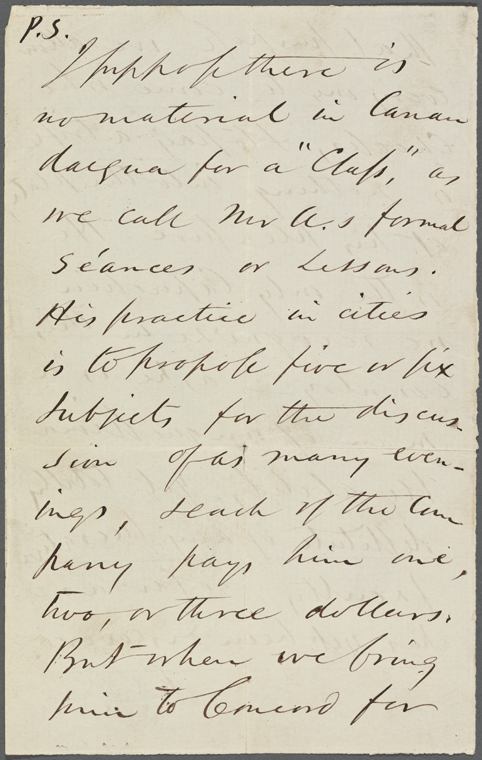 P.S.
I suppose there is
no material in Canan
daegua for a "Class," as
we call Mr A.s formal
Séances or Lessons.
His practice in cities
is to propose five or six
subjects for the discus-
sion of as many even-
ings, & each of the Com
pany pays him one,
two, or three dollars.
But when we bring
him to Concord for